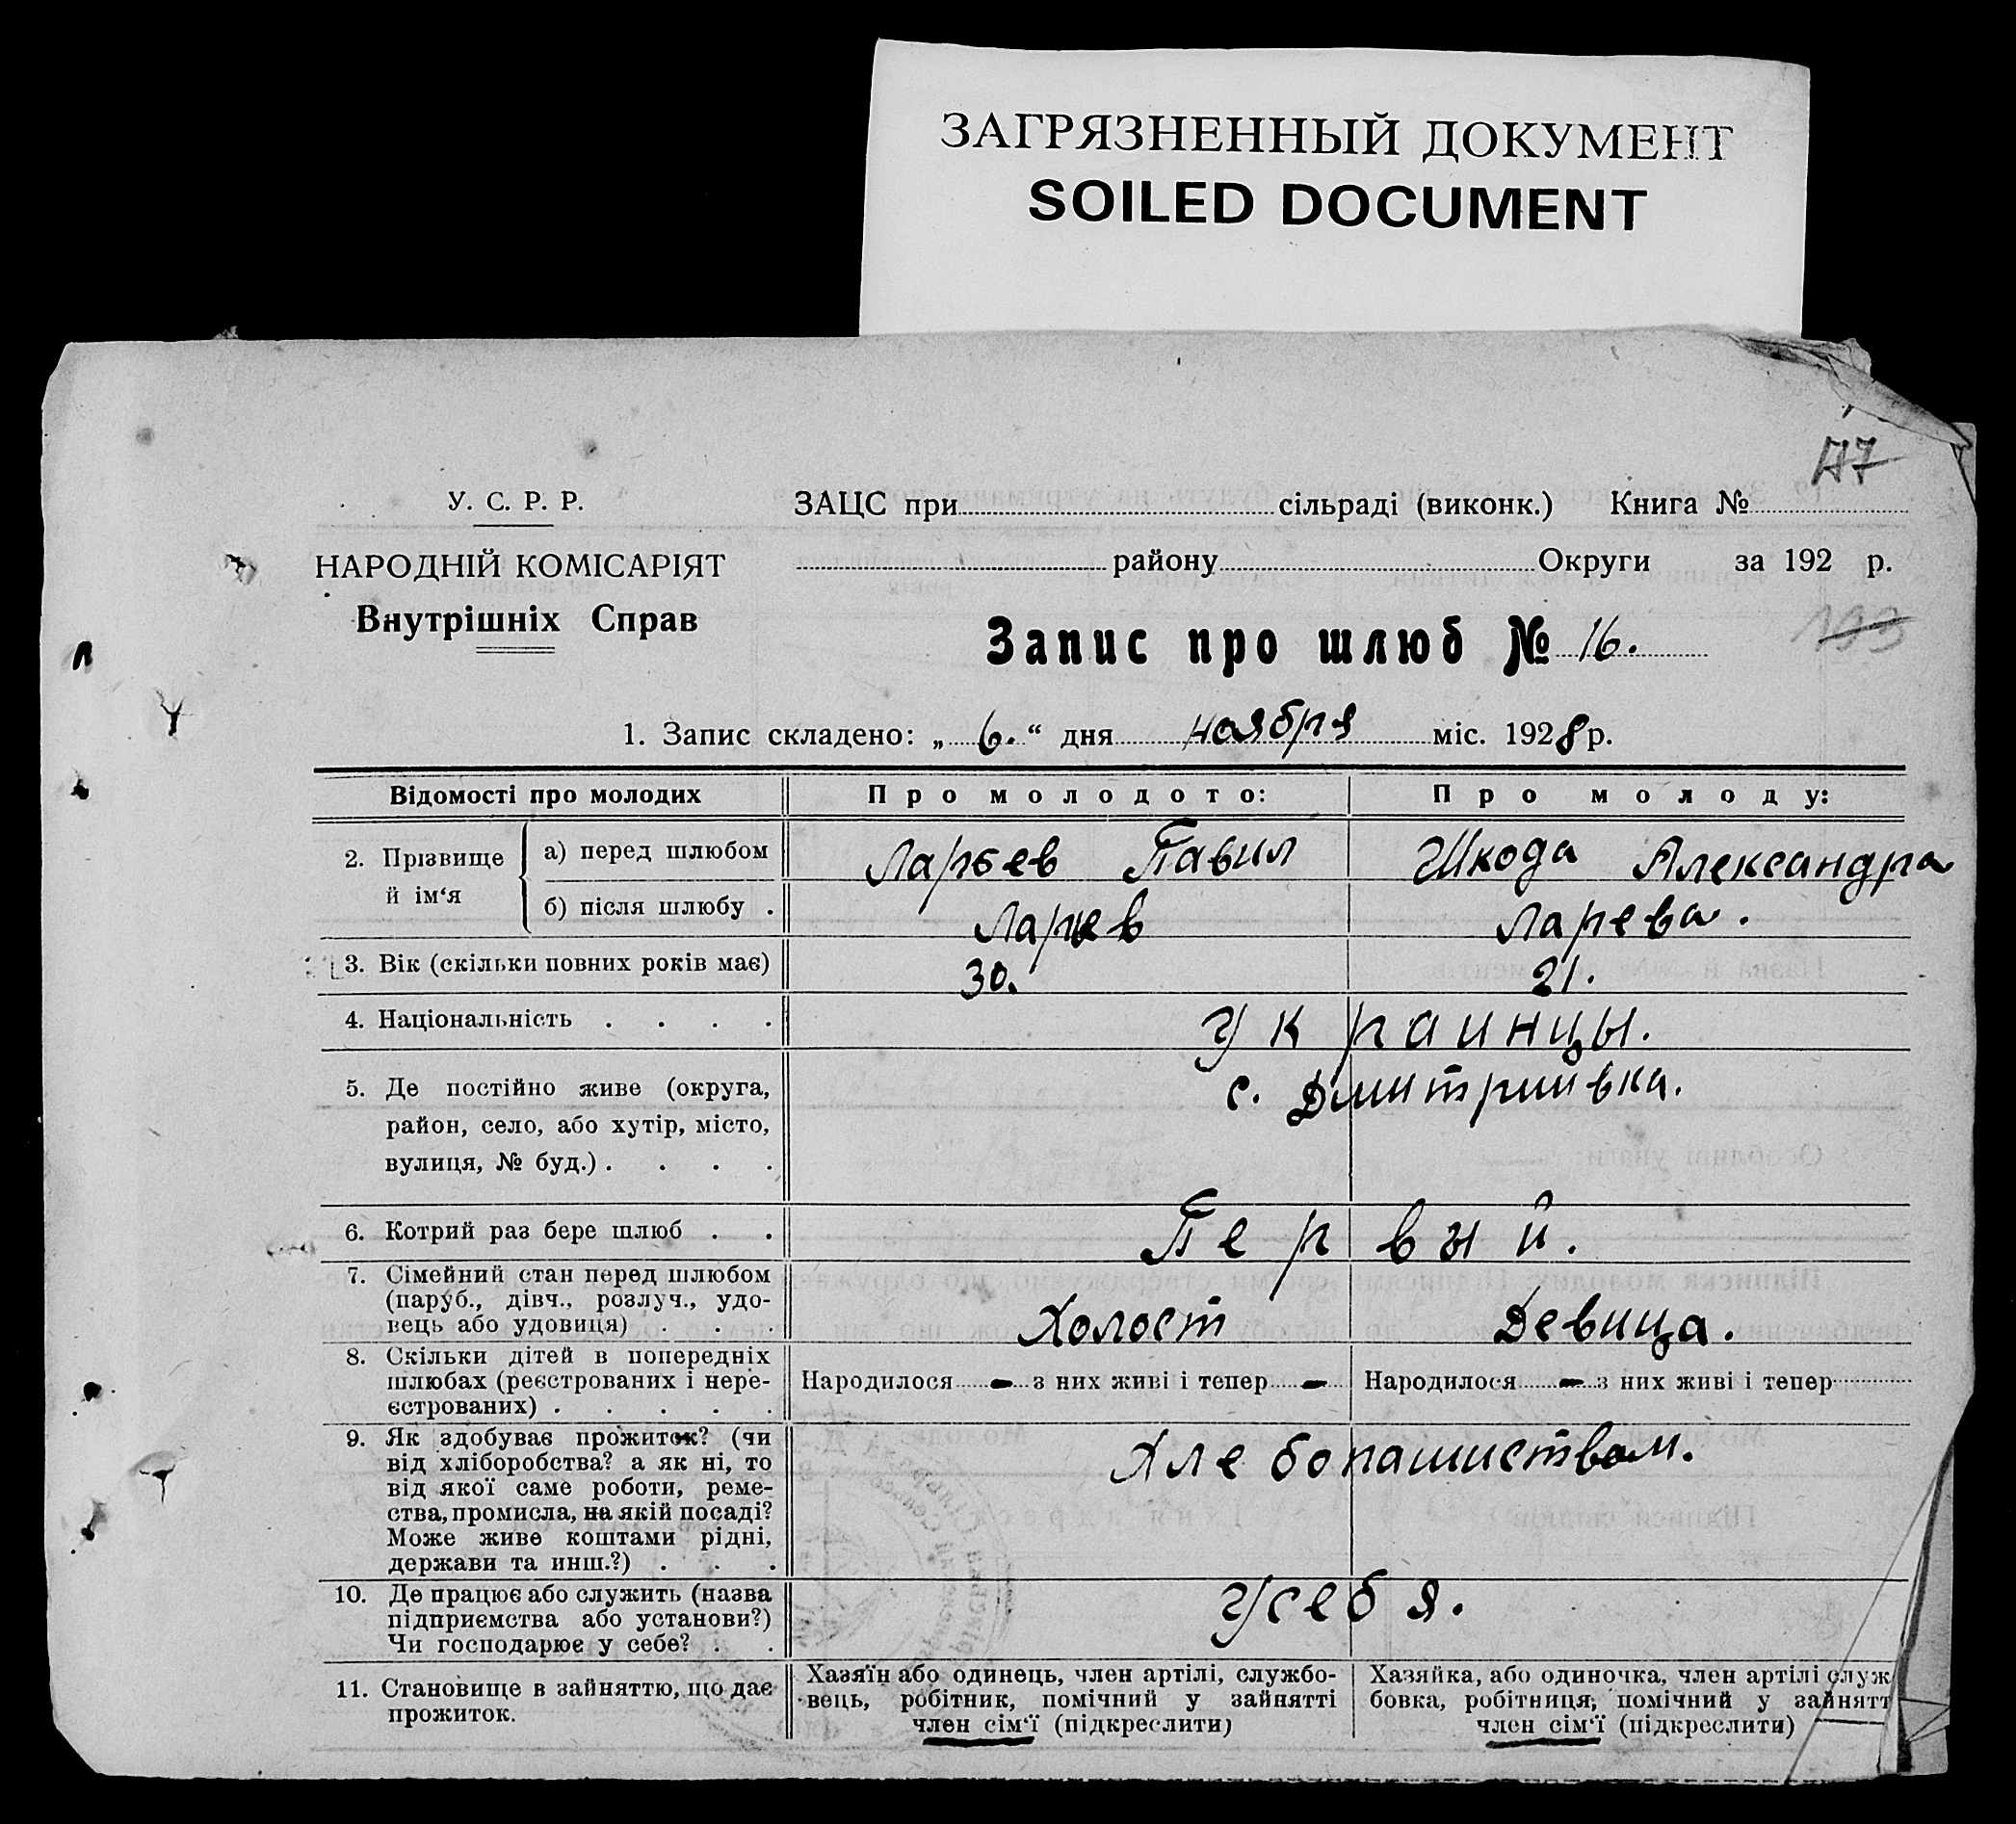 ЗАГРЯЗНЕННЫЙ ДОКУМЕНТ
SOILED DOCUMENT
У. С. Р. Р.
НАРОДНІЙ КОМІСАРІЯТ
Внутрішніх Справ
ЗАЦС при сільраді (виконк.) Книга №
району Округи за 192 р.
Запис про шлюб № 16.
193
1. Запис складено: „ 6. “ дня ноября міс. 1928 р.
Відомості про молодих Про молодого: Про молоду:
2. Прізвище й ім‘я
а) перед шлюбом Ларьев Павил Шкода Александра
б) після шлюбу . Ларев Ларева.
3. Вік (скільки повних років має) 30. 21.
4. Національність . . . . Украинцы.
5. Де постійно живе (округа, с. Дмитриивка.
район, село, або хутір, місто,
вулиця, № буд.) . . . .
6. Котрий раз бере шлюб . . Первый.
7. Сімейний стан перед шлюбом
(паруб., дівч., розлуч., удо-
вець або удовиця) . . . Холост Девица.
8. Скільки дітей в попередніх
шлюбах (реєстрованих і нере- Народилося - з них живі і тепер - Народилося - з них живі і тепер
єстрованих) . . . . .
9. Як здобуває прожиток? (чи Хлебопашиством.
від хліборобства? а як ні, то
від якої саме роботи, реме-
ства, промисла, на якій посаді?
Може живе коштами рідні,
держави та инш.?) . . .
10. Де працює або служить (назва У себя.
підприємства або установи?)
Чи господарює у себе? . .
11. Становище в зайняттю, що дає
прожиток.
Хазяїн або одинець, член артілі, службо-
вець, робітник, помічний у зайнятті
член сім‘ї (підкреслити)
Хазяйка, або одиночка, член артілі служ
бовка, робітниця, помічний у зайнятт
член сім‘ї (підкреслити)